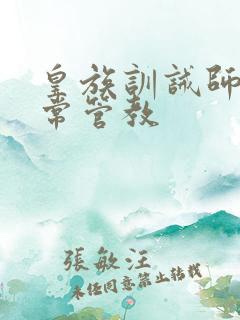 皇族訓誡師
常管教
張敏汪
未經同意禁止轉載